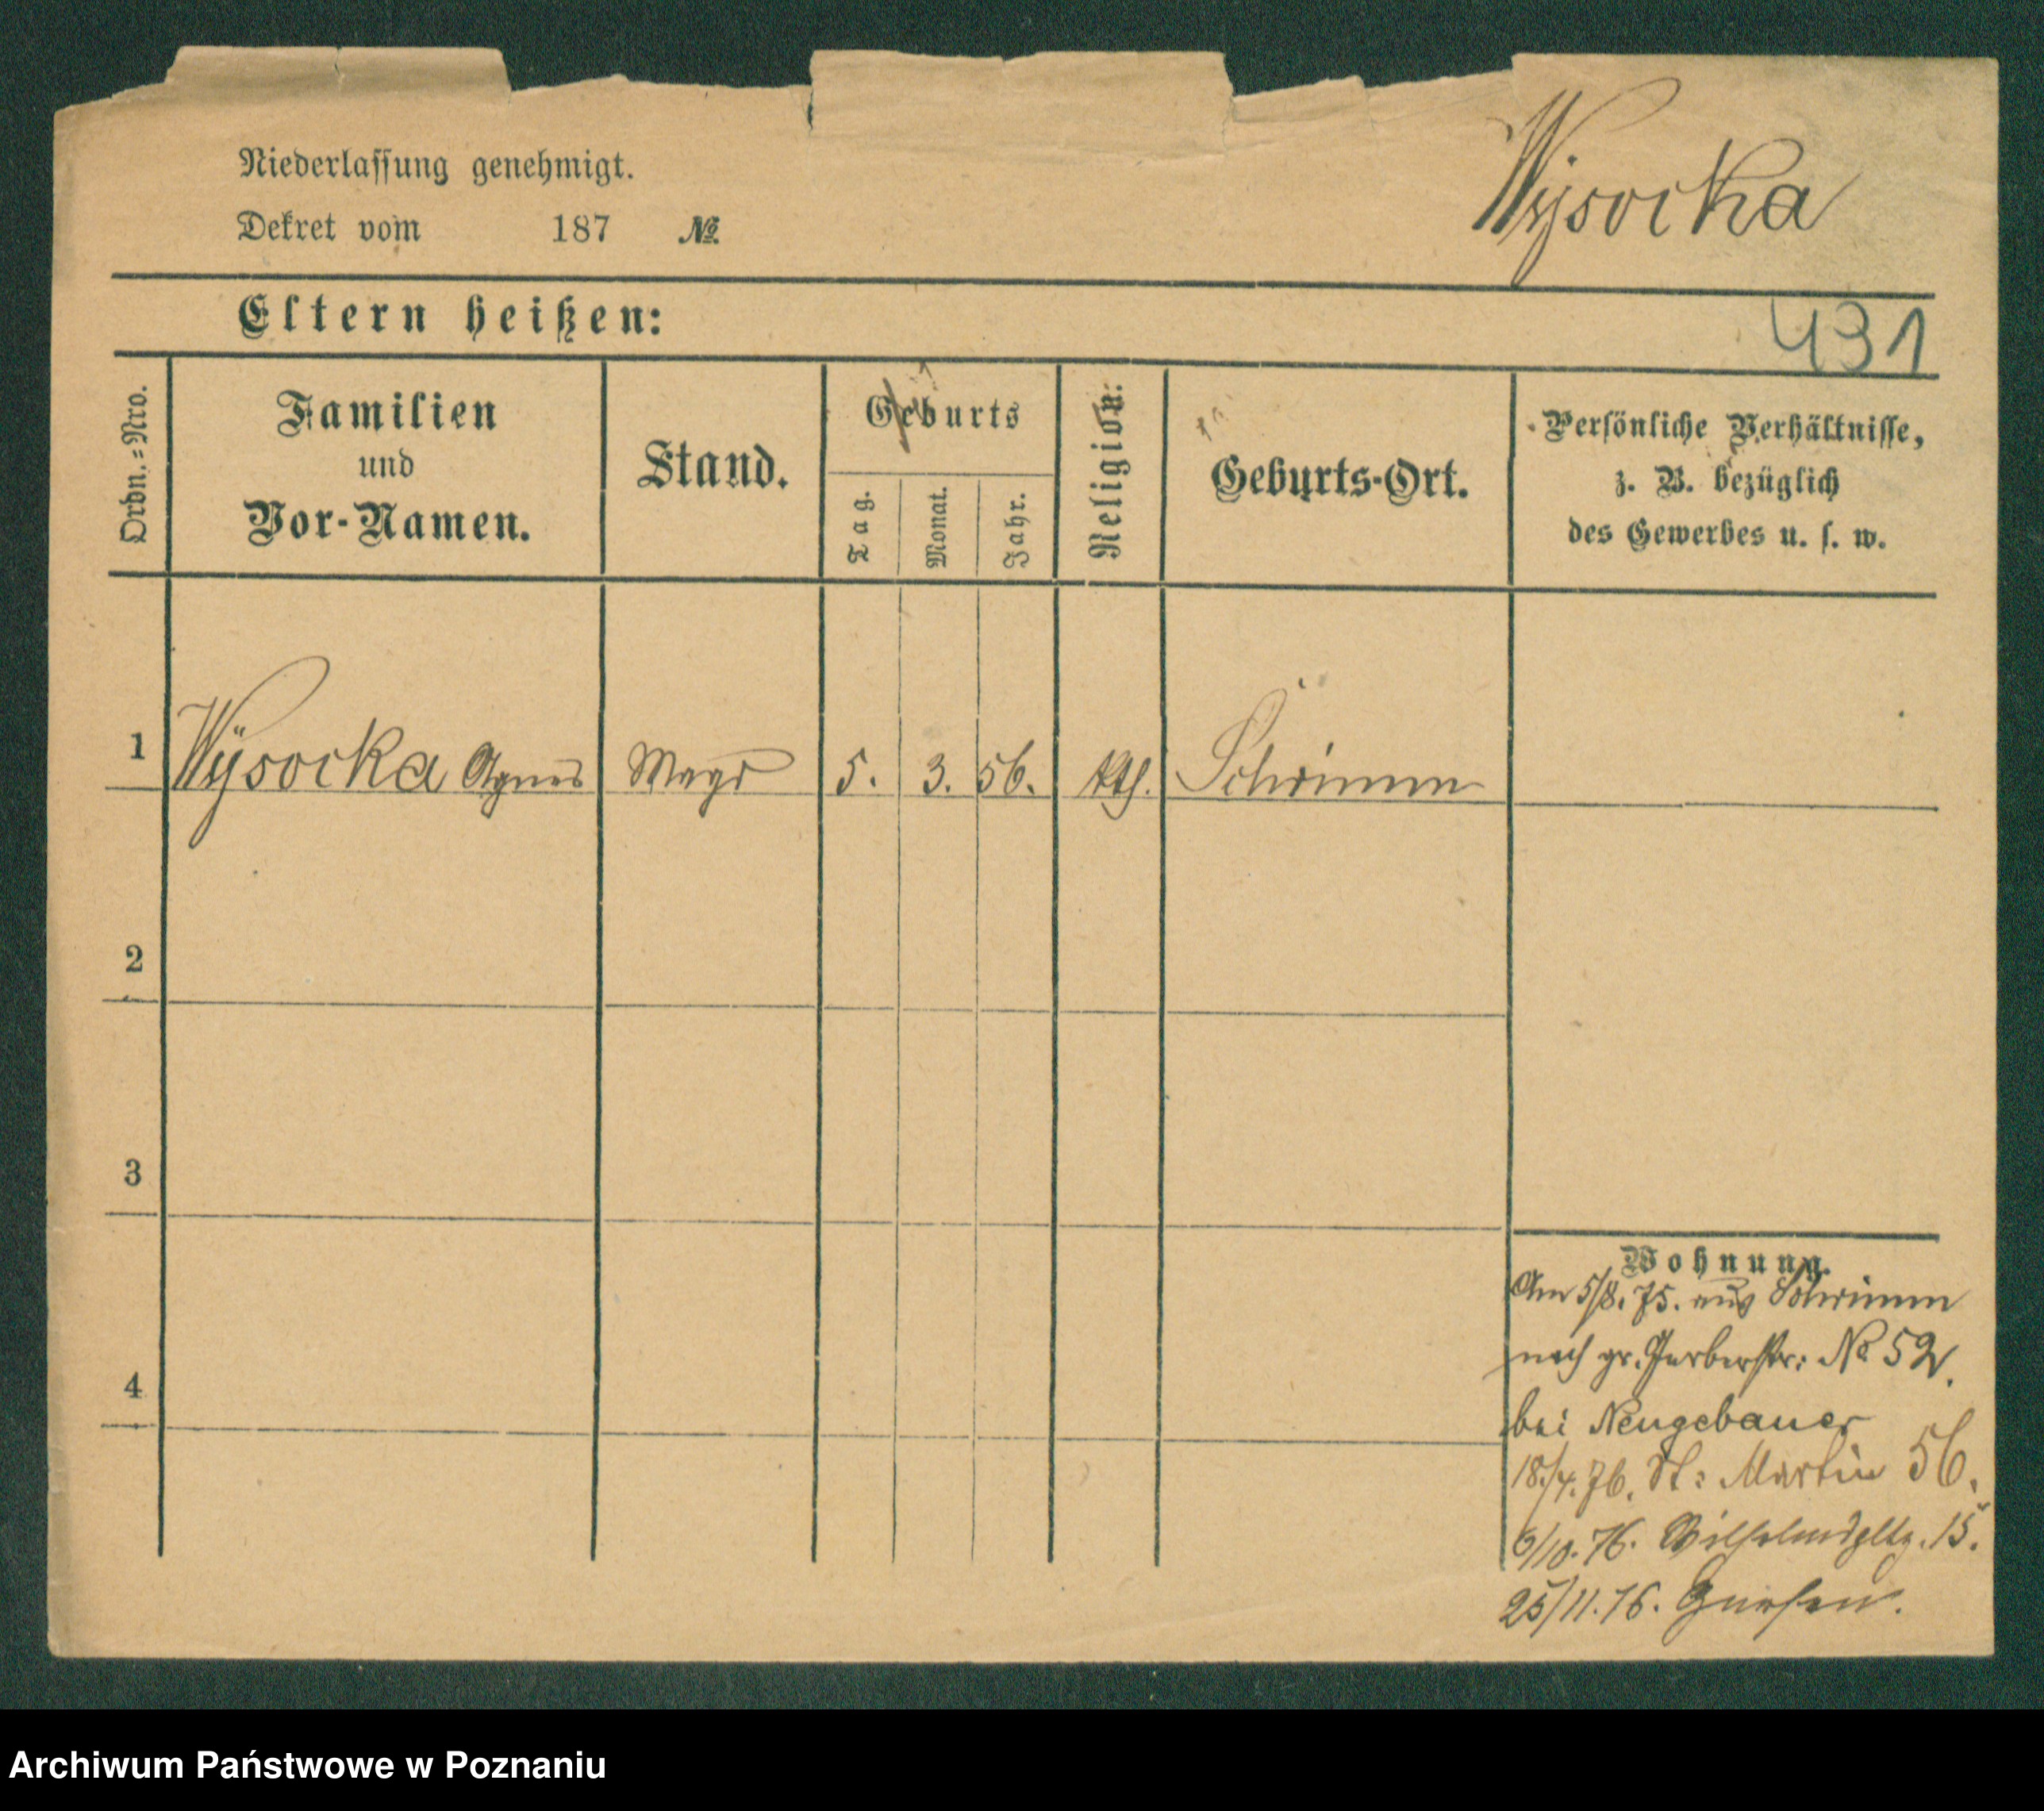 Niederlassung genehmigt.
Dekret vom 187 №
Wysocka
Eltern heißen:
431
Ordn.-Nro.
Familien
und
Vor-Namen.
Stand.
Geburts
Tag.
Monat.
Jahr.
Religion:
Geburts-Ort.
Persönliche Verhältnisse,
z. B. bezüglich
des Gewerbes u. s. w.
1 Wÿsocka Agnes Magd 5. 3. 56. kth. Schrimm
2
3
4
Wohnung.
Am 5/8. 75. aus Schrimm
nach gr. Gerberstr: № 52.
bei Neugebauer
18./4. 76. St: Martin 56.
9/10. 76. Wilhelmspltz. 15.
25/11. 76. Gnesen.
Archiwum Państwowe w Poznaniu